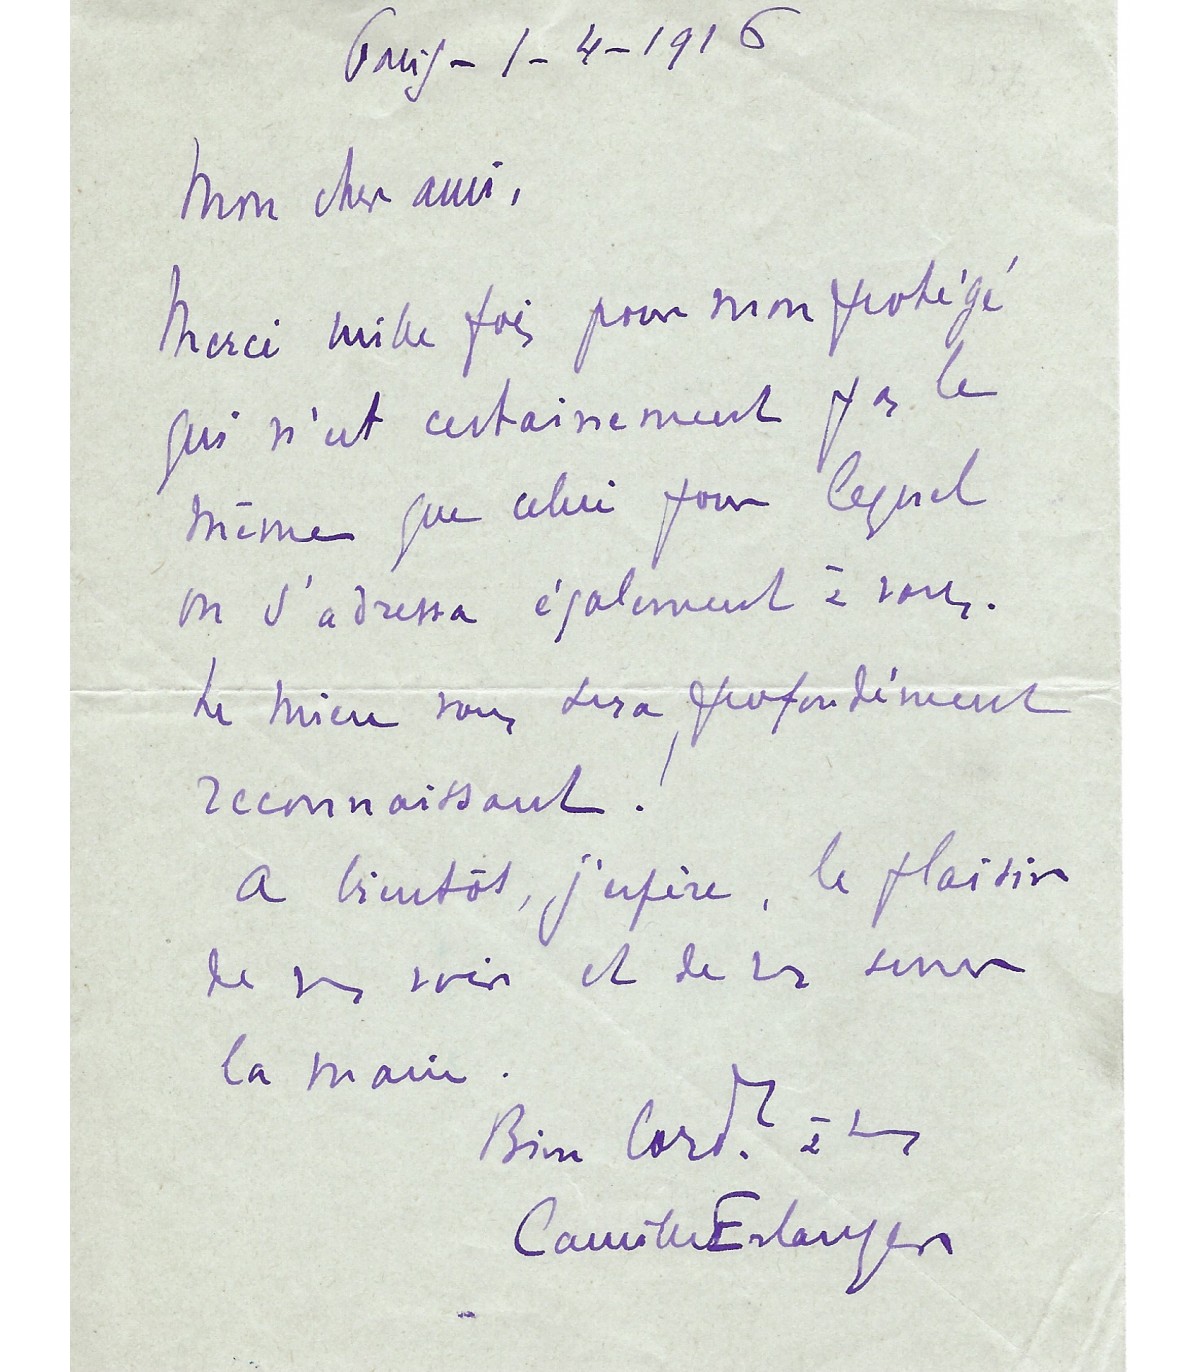 Paris - 1 - 4 - 1916
Mon cher ami,
Merci mille fois pour mon protégé
qui n'est certainement pas le
même que celui pour lequel
on s'adressa également à vous.
Le mien vous sera profondément
reconnaissant !
A bientôt, j'espère, le plaisir
de vous voir et de vous serrer
la main.
Bien Cordt. à vous
Camille Erlanger